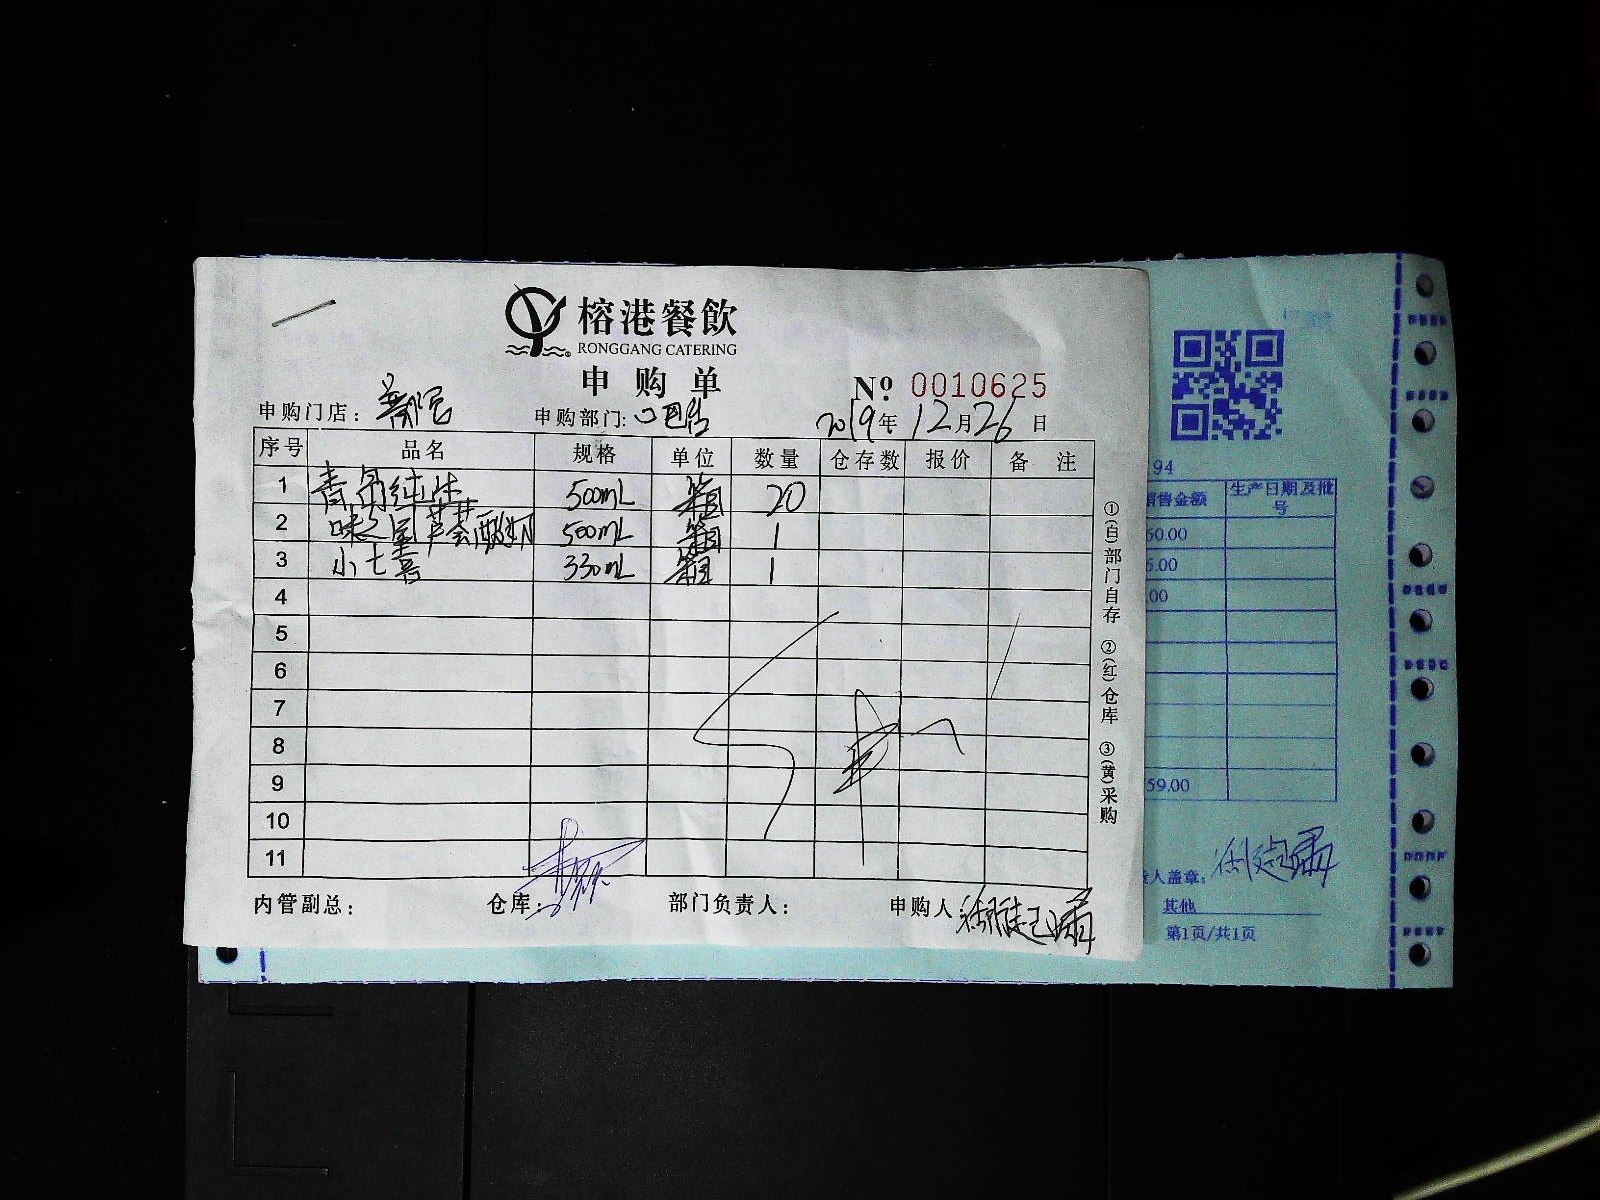 榕港餐飲
RONGGANG CATERING
申购单
№ 0010625
申购门店： 申购部门: 吧台 2019年12月26日
序号 品名 规格 单位 数量 仓存数 报价 备注
1 青岛纯生 500mL 箱 20
2 味之星芦荟酸奶 500mL 箱 1
3 小七喜 330mL 箱 1
4
5
6
7
8
9
10
11
内管副总： 仓库： 部门负责人： 申购人
①(白)部门自存 ②(红)仓库 ③(黄)采购
94
销售金额 生产日期及批号
60.00
5.00
.00
59.00
人盖章：
其他
第1页/共1页